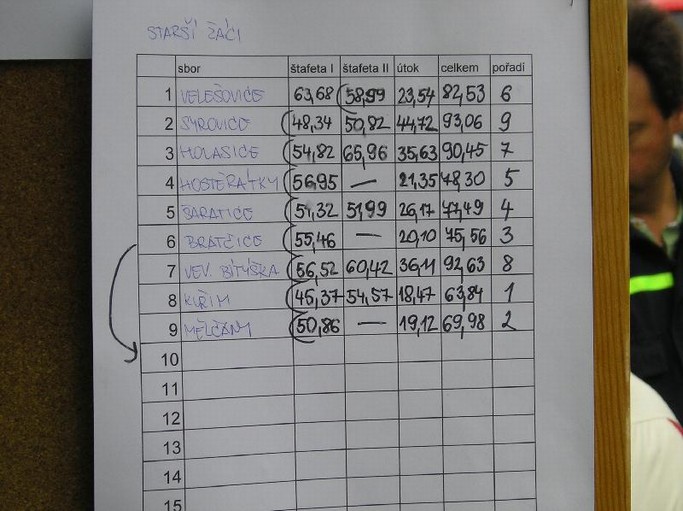 STARŠÍ ŽÁCI
sbor štafeta I štafeta II útok celkem pořadí
1 VELEŠOVICE 63,68 58,99 23,54 82,53 6
2 SYROVICE 48,34 50,82 44,72 93,06 9
3 HOLASICE 54,82 65,96 35,63 90,45 7
4 HOSTĚRÁTKY 56,95 — 21,35 78,30 5
5 ŠARATICE 51,32 51,99 26,17 77,49 4
6 BRATČICE 55,46 — 20,10 75,56 3
7 VEV. BÍTÝŠKA 56,52 60,42 36,11 92,63 8
8 KUŘIM 45,37 54,57 18,47 63,84 1
9 MĚLČANY 50,86 — 19,12 69,98 2
10
11
12
13
14
15